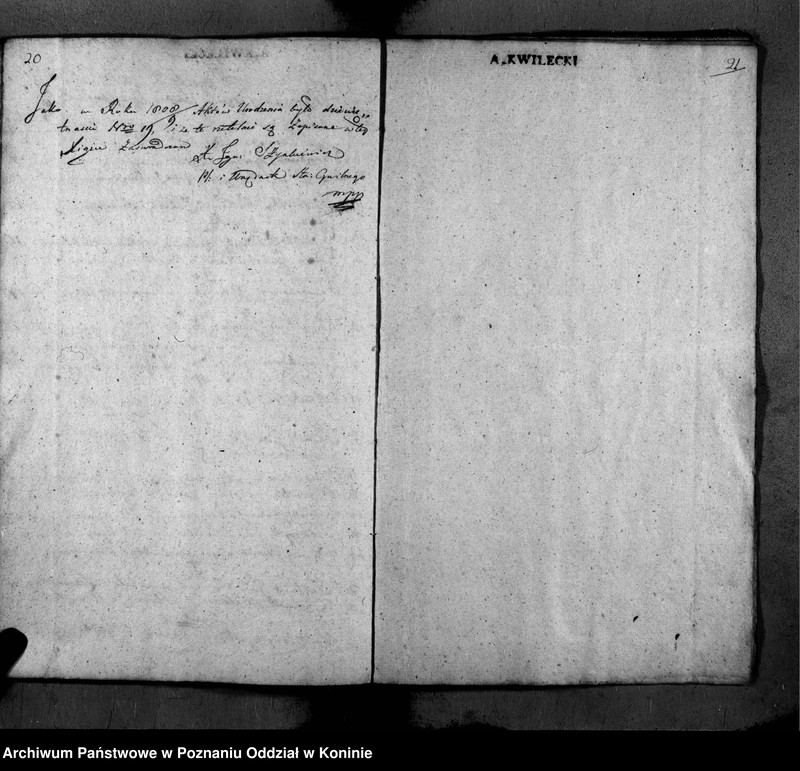 20
Jako w Roku 1808 Aktów Urodzenia było dziewię
tnaście Nro 19 i że te rzetelnie są Zapisane w tey
Xiędze Zaświadczam
X. Ign:
Pl: i Urzędnik Sta: Cywilnego
mpp
A.KWILECKI
21
Archiwum Państwowe w Poznaniu Oddział w Koninie